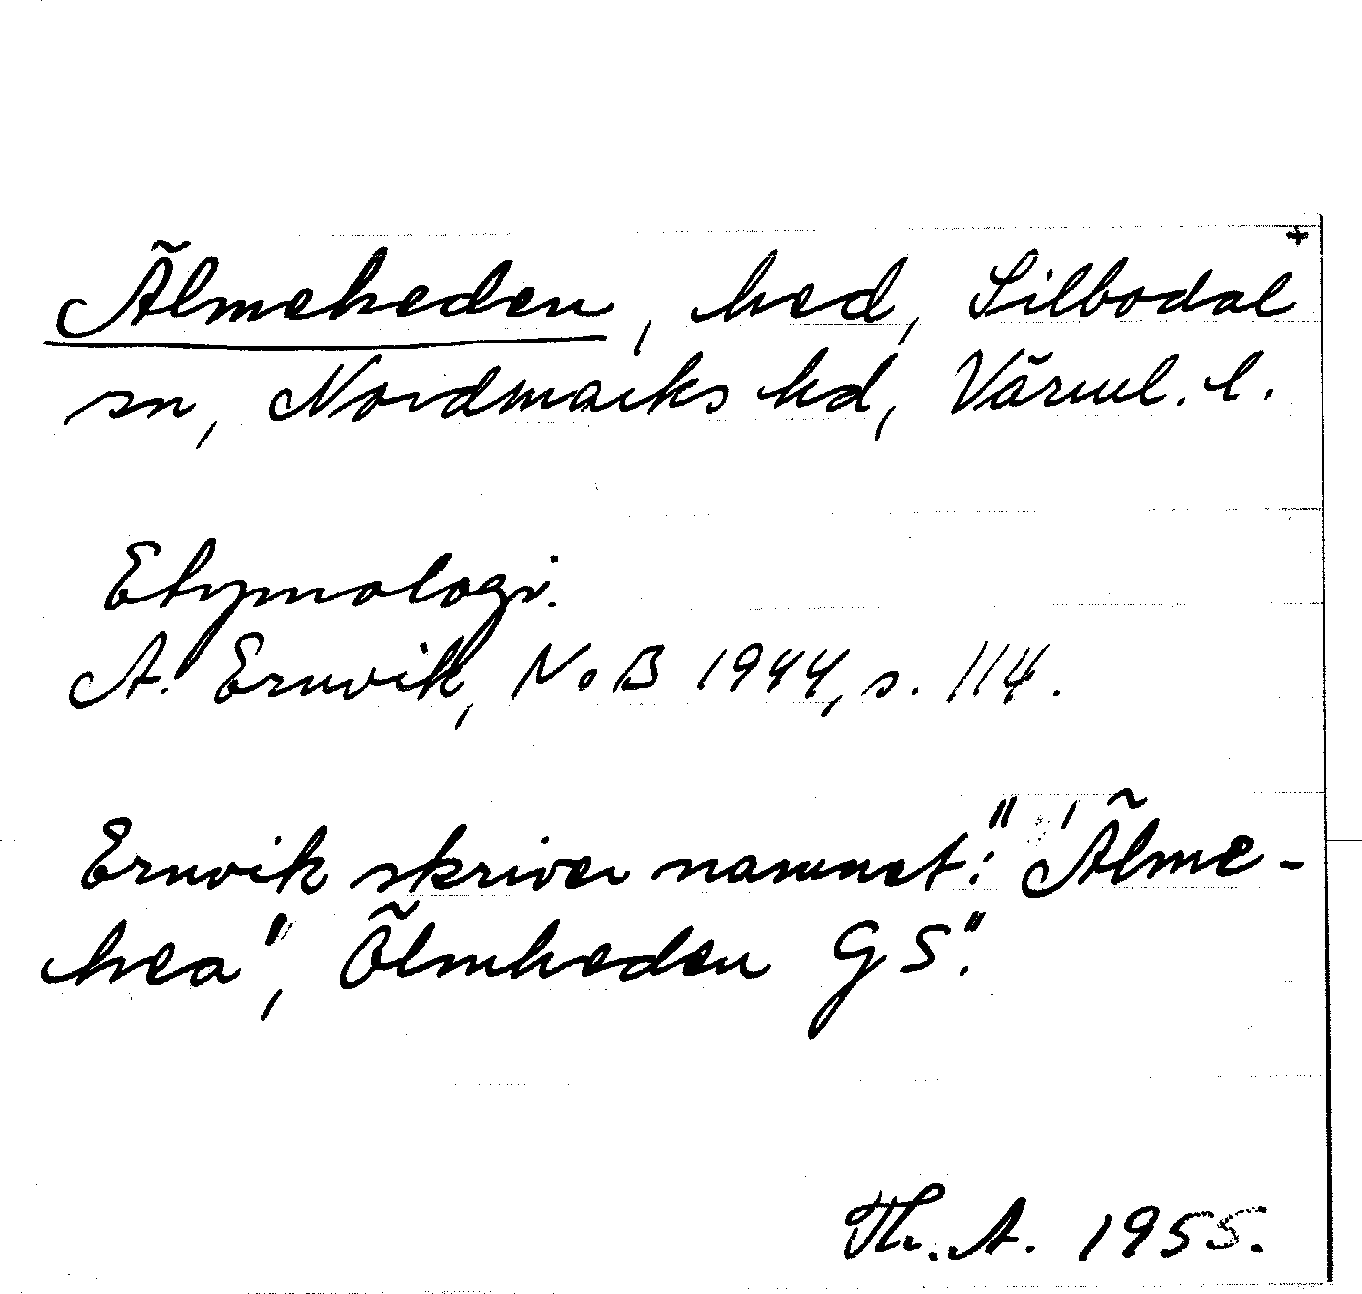 Älmeheden, hed, Silbodal
sn, Nordmarks hd, Värml. l.
Etymologi.
A. Ernvik, NoB 1944, s. 114.
Ernvik skriver namnet: " 'Älme-
hea', Ölmheden GS".
Th. A. 1955.